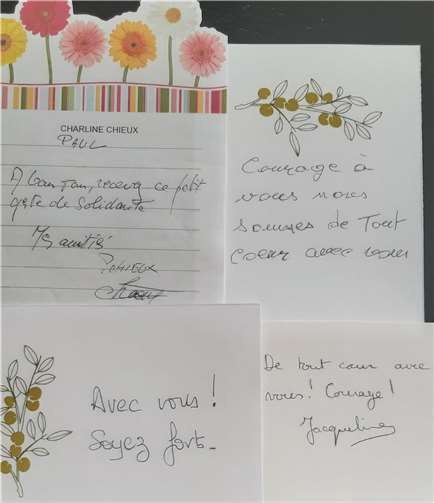 CHARLINE CHIEUX
PAUL
recevez ce petit
geste de Solidarité
Mes amitiés
P. CHIEUX
Courage à
vous nous
sommes de Tout
coeur avec vous
Avec vous !
Soyez forts_
De tout cœur avec
vous ! Courage !
Jacqueline